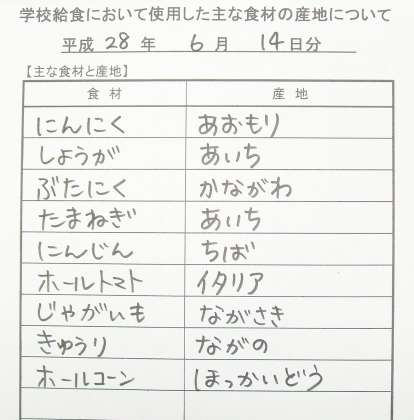 学校給食において使用した主な食材の産地について
平成 28 年 6 月 14 日分
【主な食材と産地】
食 材 産 地
にんにく あおもり
しょうが あいち
ぶたにく かながわ
たまねぎ あいち
にんじん ちば
ホールトマト イタリア
じゃがいも ながさき
きゅうり ながの
ホールコーン ほっかいどう